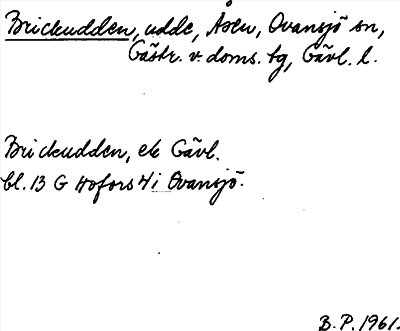 Brickudden, udde, Åsen, Ovansjö sn,
Gästr. v. doms. tg, Gävl. l.
Brickudden, ek Gävl.
bl. 13 G Hofors 4i Ovansjö.
B.P. 1961.